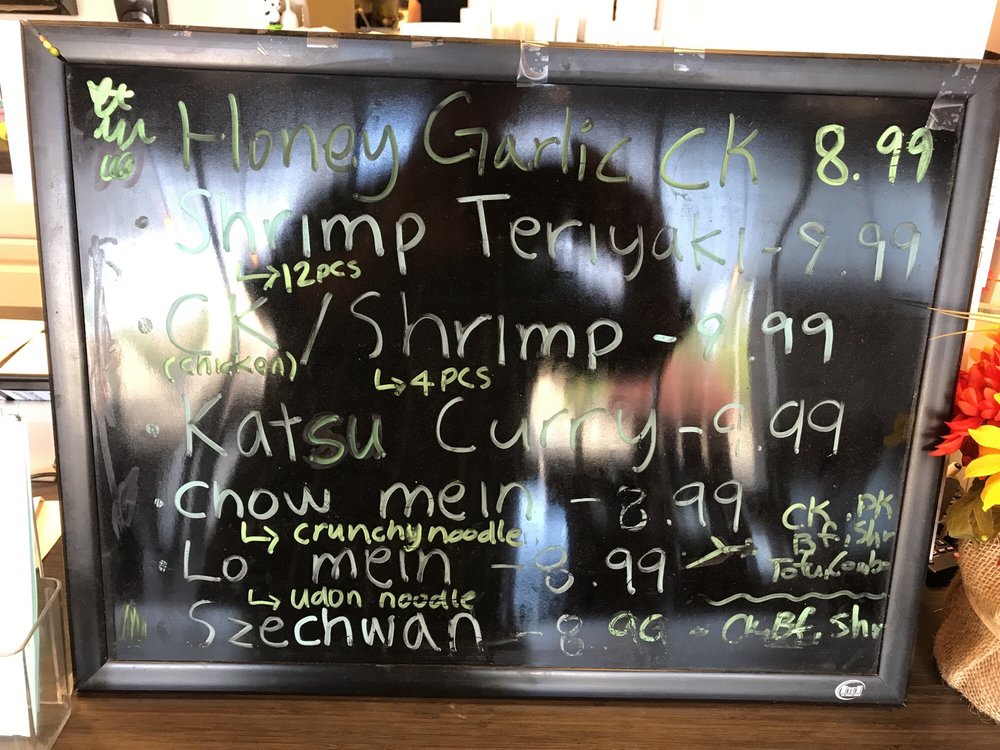 Honey Garlic CK 8.99
• Shrimp Teriyaki - 9.99
↳ 12 pcs
• CK / Shrimp - 9.99
(chicken)
↳ 4 pcs
• Katsu Curry - 9.99
• Chow mein - 8.99
↳ crunchy noodle
• Lo mein - 8.99
↳ udon noodle
CK, PK
Bf, Shr
Tofu, Combo
Szechwan - 8.99 - CK, Bf, Shr